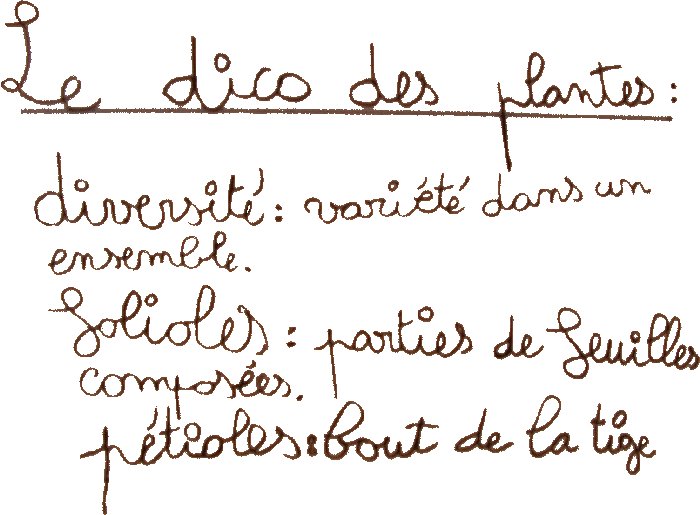 Le dico des plantes :
diversité : variété dans un
ensemble.
folioles : parties de feuilles
composées.
pétioles : bout de la tige